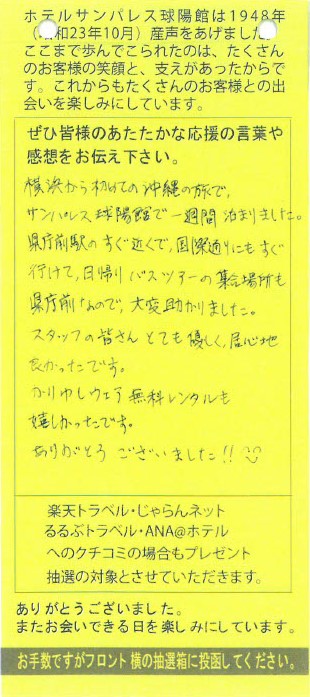 ホテルサンパレス球陽館は1948年
和23年10月）産声をあげました
ここまで歩んでこられたのは、たくさん
のお客様の笑顔と、支えがあったからで
す。これからもたくさんのお客様との出
会いを楽しみにしています。
ぜひ皆様のあたたかな応援の言葉や
感想をお伝え下さい。
横浜から初めての沖縄の旅で、
サンパレス球陽館で一週間泊まりました。
県庁前駅のすぐ近くで、国際通りにもすぐ
行けて、日帰りバスツアーの集合場所も
県庁前なので、大変助かりました。
スタッフの皆さんとても優しく、居心地
良かったです。
かりゆしウェア無料レンタルも
嬉しかったです。
ありがとうございました!!
楽天トラベル・じゃらんネット
るるぶトラベル・ANA@ホテル
へのクチコミの場合もプレゼント
抽選の対象とさせていただきます。
ありがとうございました。
またお会いできる日を楽しみにしています。
お手数ですがフロント横の抽選箱に投函してください。